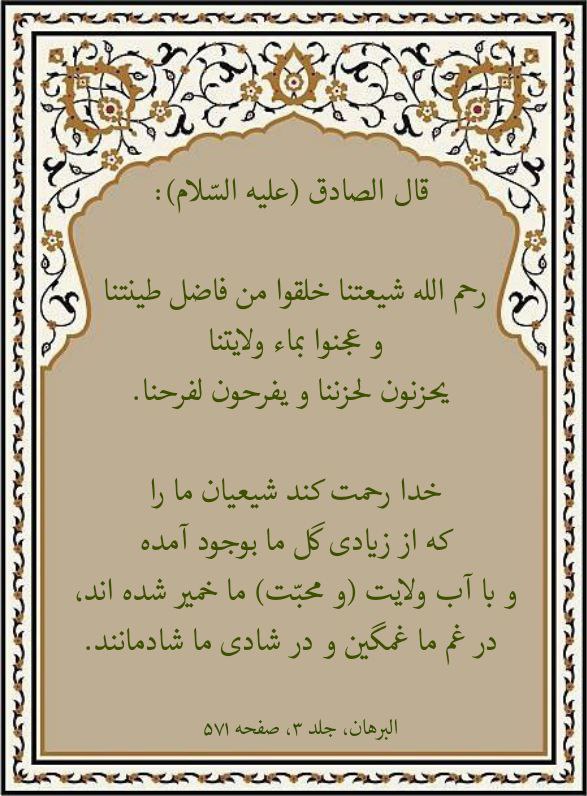 قال الصادق (علیه السّلام):
رحم الله شیعتنا خلقوا من فاضل طینتنا
و عجنوا بماء ولایتنا
یحزنون لحزننا و یفرحون لفرحنا.
خدا رحمت کند شیعیان ما را
که از زیادی گل ما بوجود آمده
و با آب ولایت (و محبّت) ما خمیر شده اند،
در غم ما غمگین و در شادی ما شادمانند.
البرهان، جلد ۳، صفحه ۵۷۱